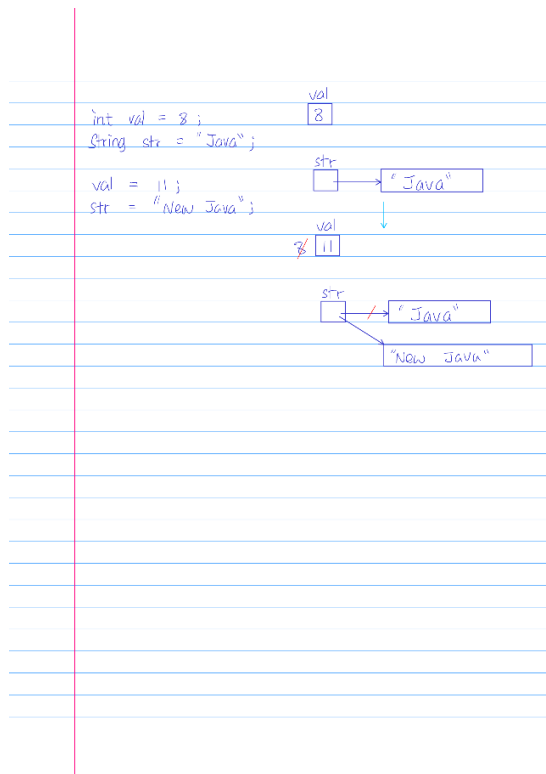 int val = 8;
String str = "Java";
val = 11;
str = "New Java";
val
8
str
"Java"
val
8 11
str
"Java"
"New Java"